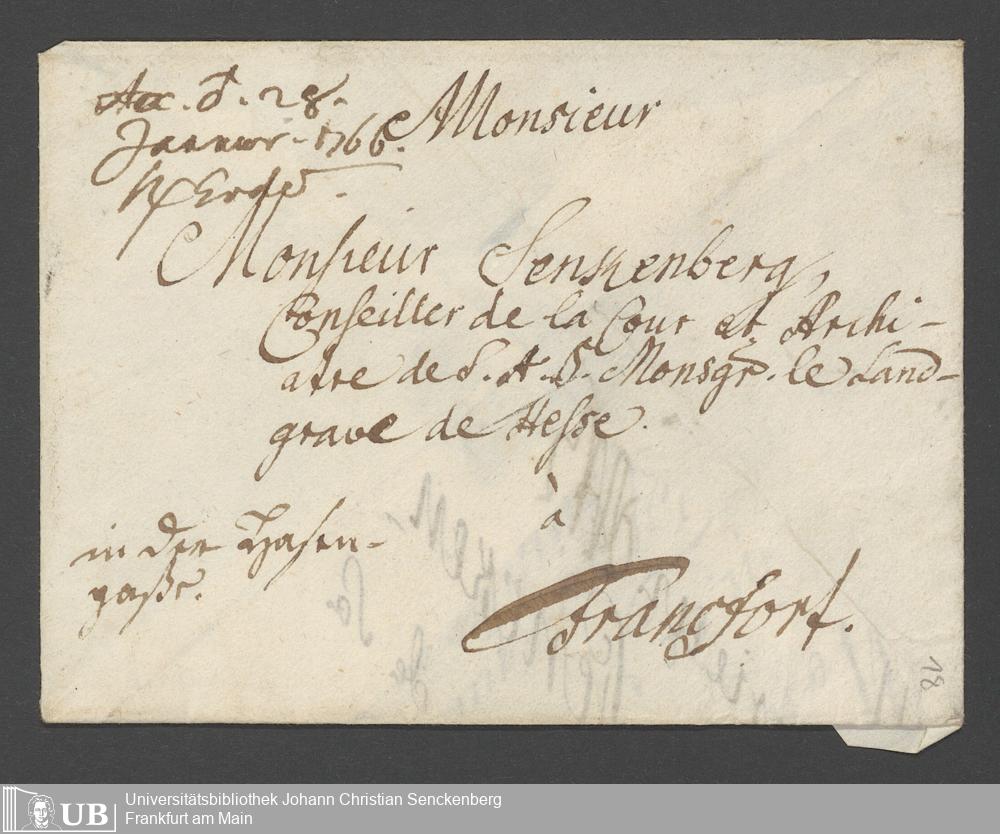 Acc. d. 28.
Januar. 1766.
Monsieur
Monsieur Senkenberg,
Conseiller de la Cour et Archi-
atre de S. A. S. Monsgr. le Land-
grave de Hesse.
à
Francfort.
in der Hasen-
gaße.
18
UB
Universitätsbibliothek Johann Christian Senckenberg
Frankfurt am Main